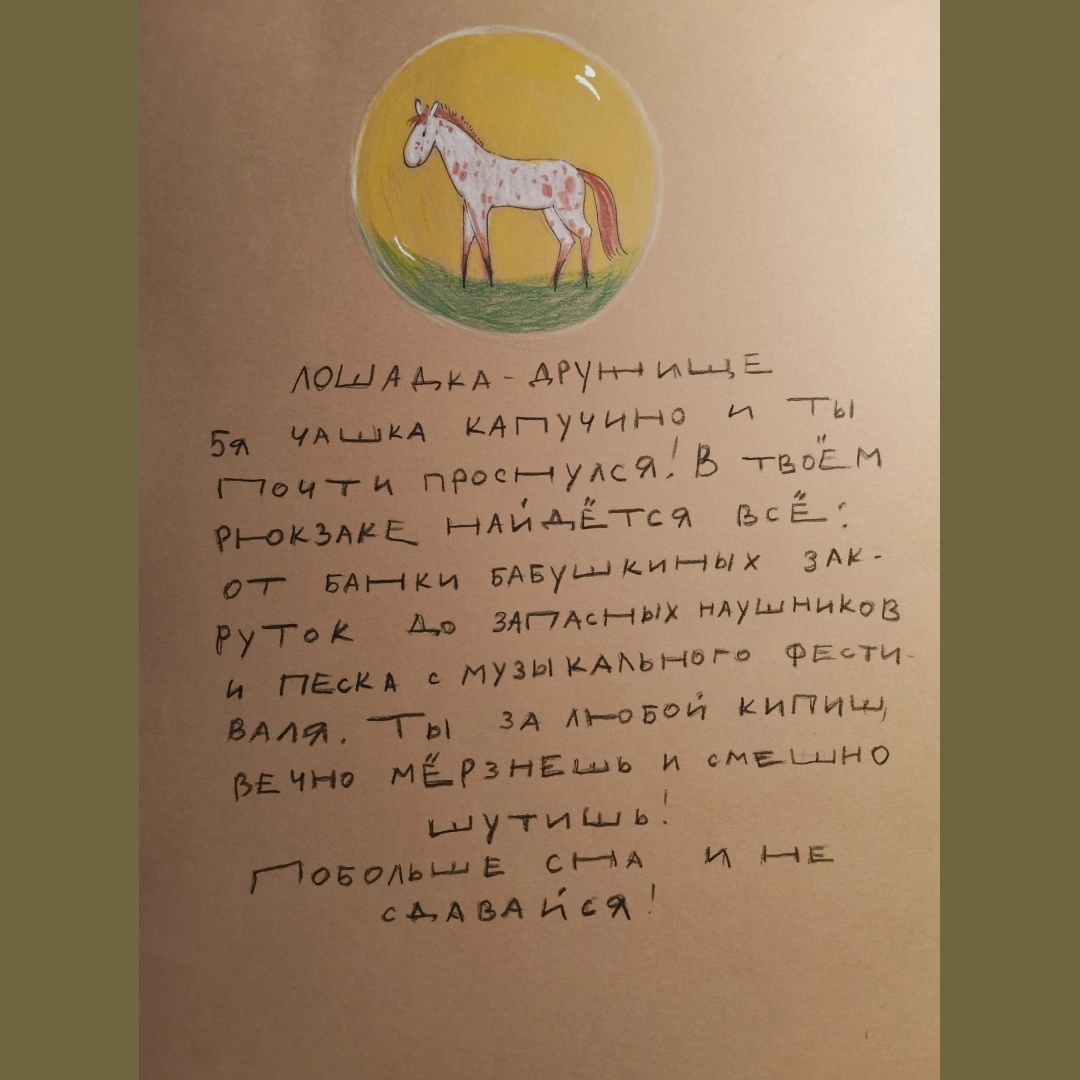 ЛОШАДКА - ДРУЖИЩЕ
5я ЧАШКА КАПУЧИНО И ТЫ
ПОЧТИ ПРОСНУЛСЯ! В ТВОЁМ
РЮКЗАКЕ НАЙДЁТСЯ ВСЁ:
ОТ БАНКИ БАБУШКИНЫХ ЗАК-
РУТОК ДО ЗАПАСНЫХ НАУШНИКОВ
И ПЕСКА С МУЗЫКАЛЬНОГО ФЕСТИ-
ВАЛЯ. ТЫ ЗА ЛЮБОЙ КИПИШ,
ВЕЧНО МЁРЗНЕШЬ И СМЕШНО
ШУТИШЬ!
ПОБОЛЬШЕ СНА И НЕ
СДАВАЙСЯ!